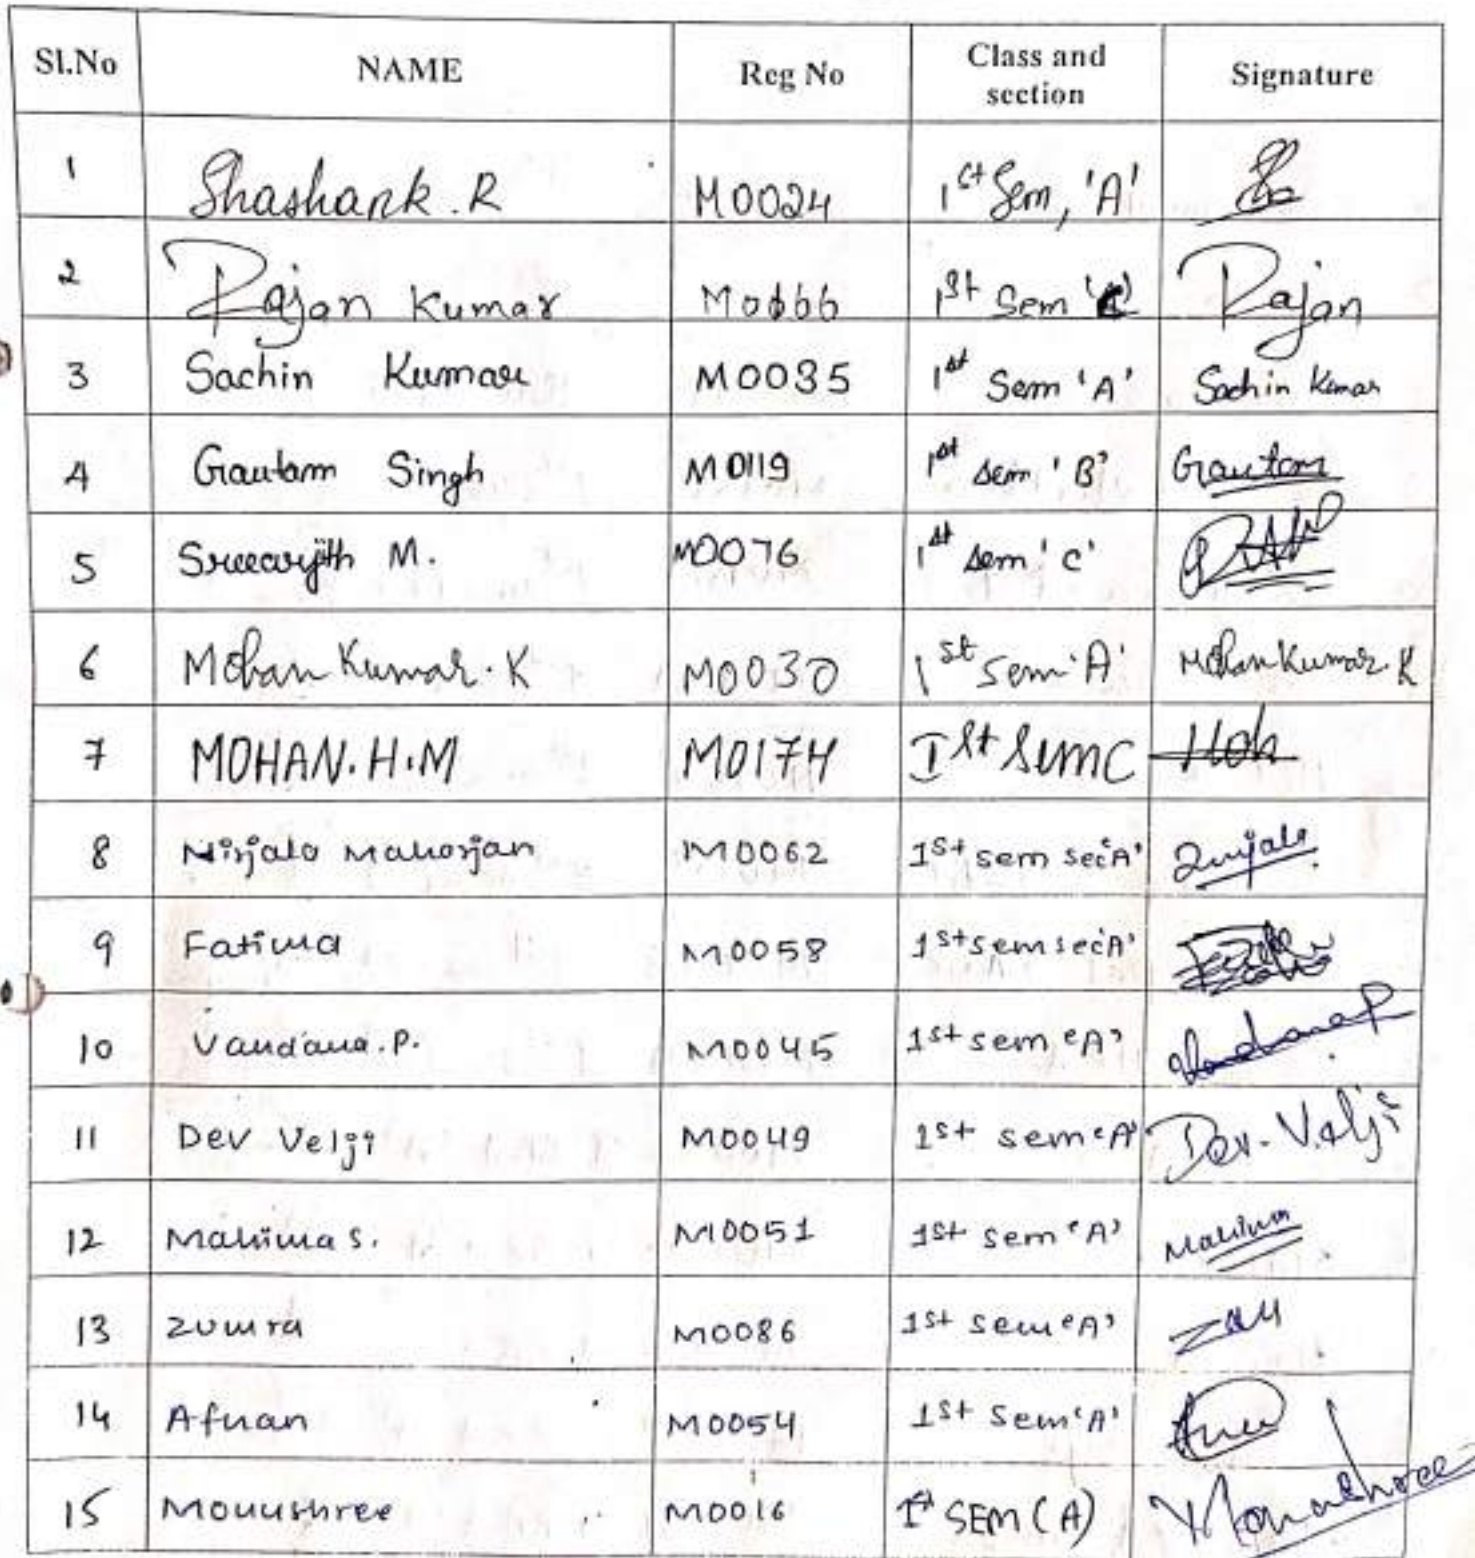 Sl.No NAME Reg No Class and section Signature
1 Shashank.R M0024 1st Sem, 'A'
2 Rajan Kumar M0166 1st Sem 'C' Rajan
3 Sachin Kumar M0035 1st Sem 'A' Sachin Kumar
4 Gautam Singh M0119 1st sem 'B' Gautam
5 Sreearjith M. M0076 1st sem 'C'
6 Mohan Kumar.K M0030 1st Sem 'A' Mohan Kumar.K
7 MOHAN.H.M M0174 Ist sem C Moh
8 Nirjala Maharjan M0062 1st sem sec 'A'
9 Fatima M0058 1st sem sec 'A'
10 Vandana.P. M0045 1st sem 'A' Vandana P
11 Dev Velji M0049 1st sem 'A' Dev. Velji
12 Mahima S. M0051 1st sem 'A' Mahima
13 Zumra M0086 1st sem 'A'
14 Afnan M0054 1st sem 'A'
15 Monushree M0016 Ist SEM (A) Monushree